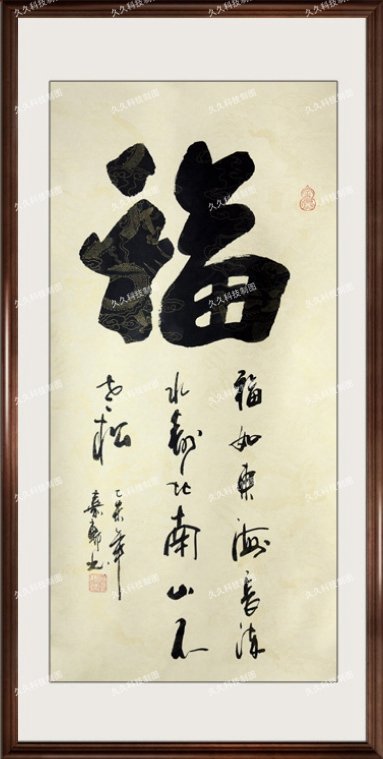 福
福如东海长流
水寿比南山不
老松
乙未年
嘉乡书
久久科技制图